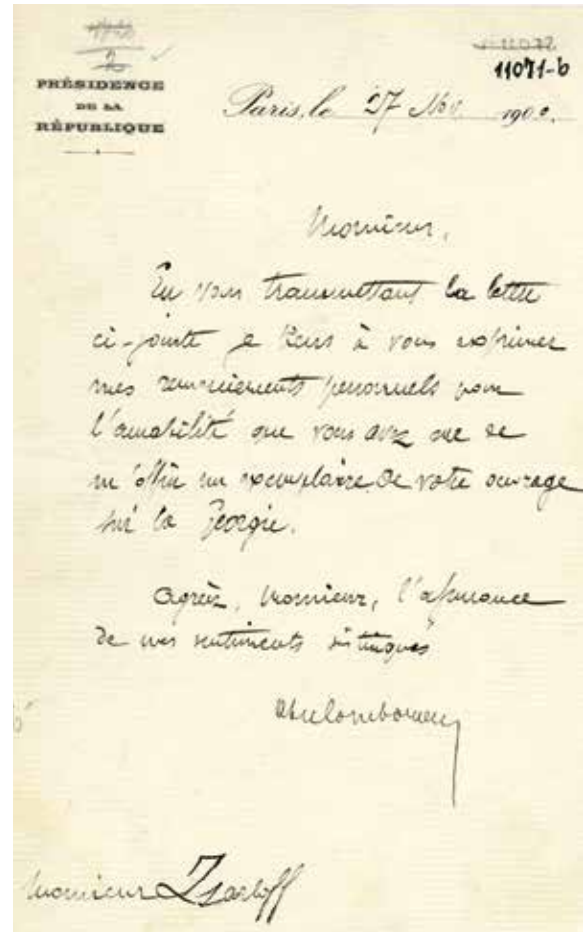 11071-b
PRÉSIDENCE
DE LA
RÉPUBLIQUE
Paris, le 27 Nov. 1900.
Monsieur,
En vous transmettant la lettre
ci-jointe je tiens à vous exprimer
mes remerciements personnels pour
l'amabilité que vous avez eue de
m'offrir un exemplaire de votre ouvrage
sur la Géorgie.
Agréez, Monsieur, l'assurance
de mes sentiments distingués
Monsieur